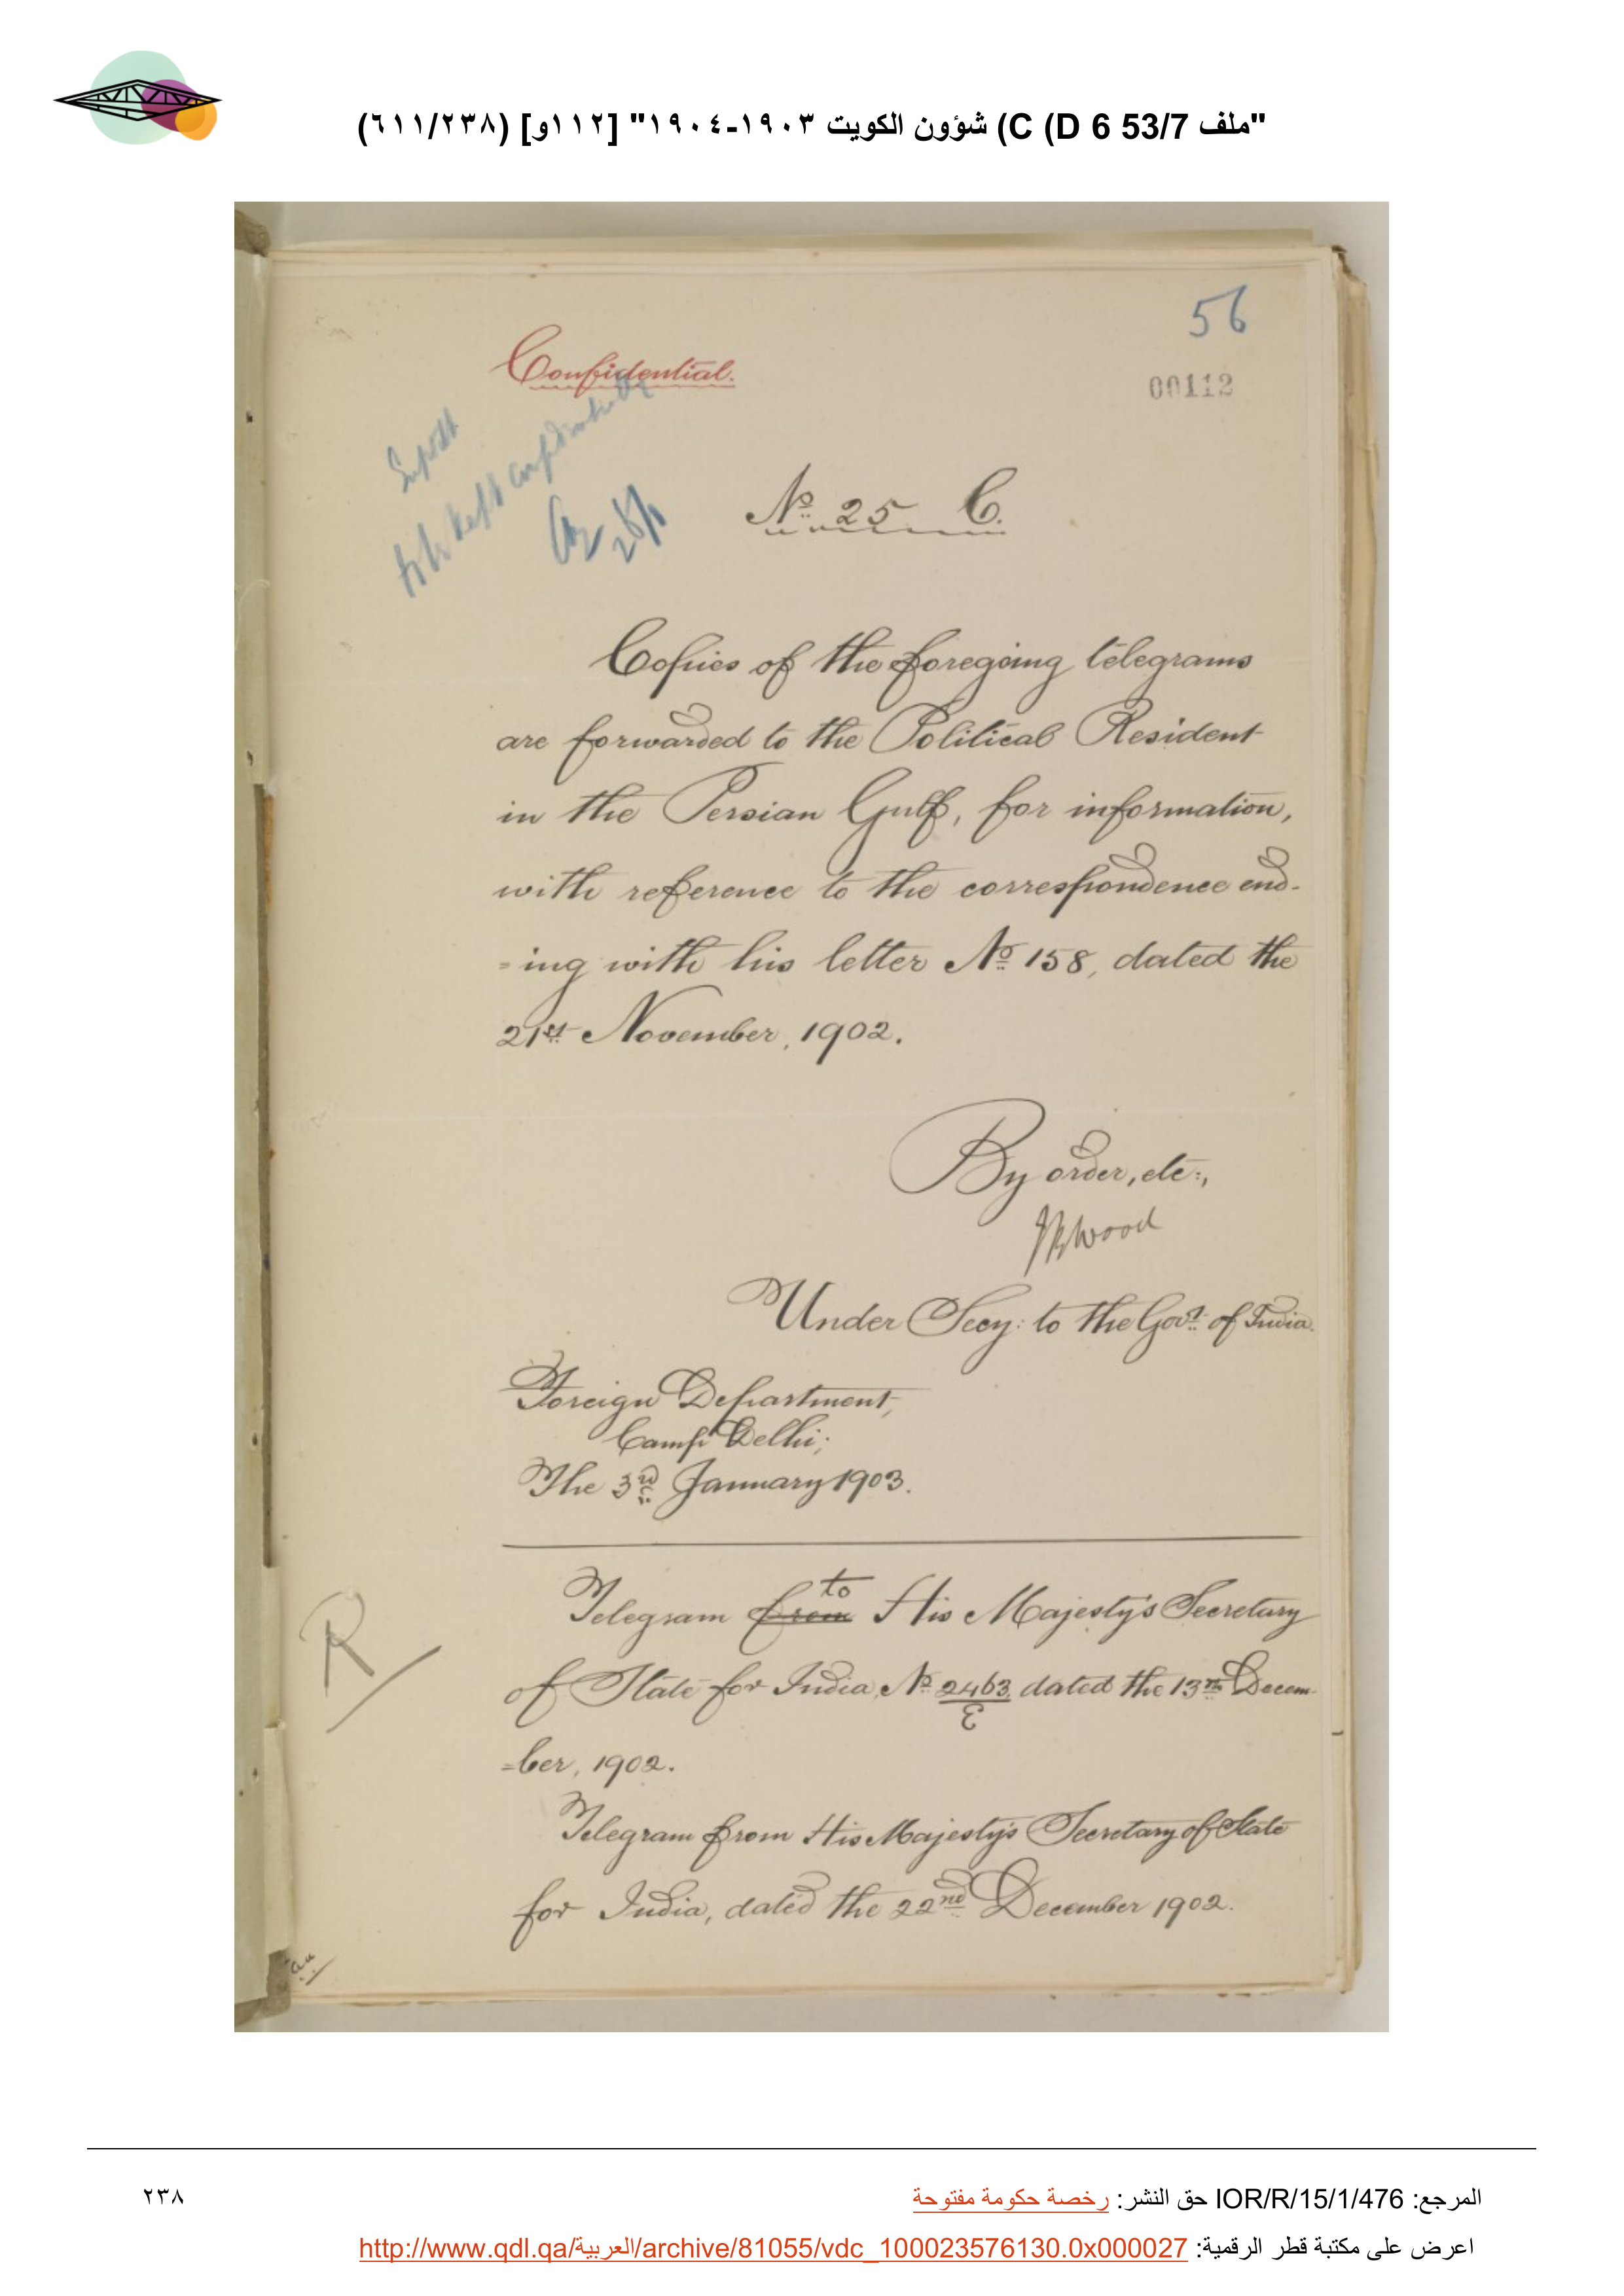 "ملف 53/7 C (D 6) شؤون الكويت ١٩٠٣-١٩٠٤" [١١٢و] (٦١١/٢٣٨)
56
Confidential.
00112
to be kept confidentially
28/1
No 25 C.
Copies of the foregoing telegrams
are forwarded to the Political Resident
in the Persian Gulf, for information,
with reference to the correspondence end-
=ing with his letter No 158, dated the
21st November, 1902.
By order, etc:,
Wood
Under Secy: to the Govt: of India.
Foreign Department,
Camp Delhi;
The 3rd January 1903.
R
Telegram from to His Majesty's Secretary
of State for India, No 2463/E dated the 13th Decem-
=ber, 1902.
Telegram from His Majesty's Secretary of State
for India, dated the 22nd December 1902.
المرجع: IOR/R/15/1/476 حق النشر: رخصة حكومة مفتوحة
٢٣٨
اعرض على مكتبة قطر الرقمية: http://www.qdl.qa/العربية/archive/81055/vdc_100023576130.0x000027